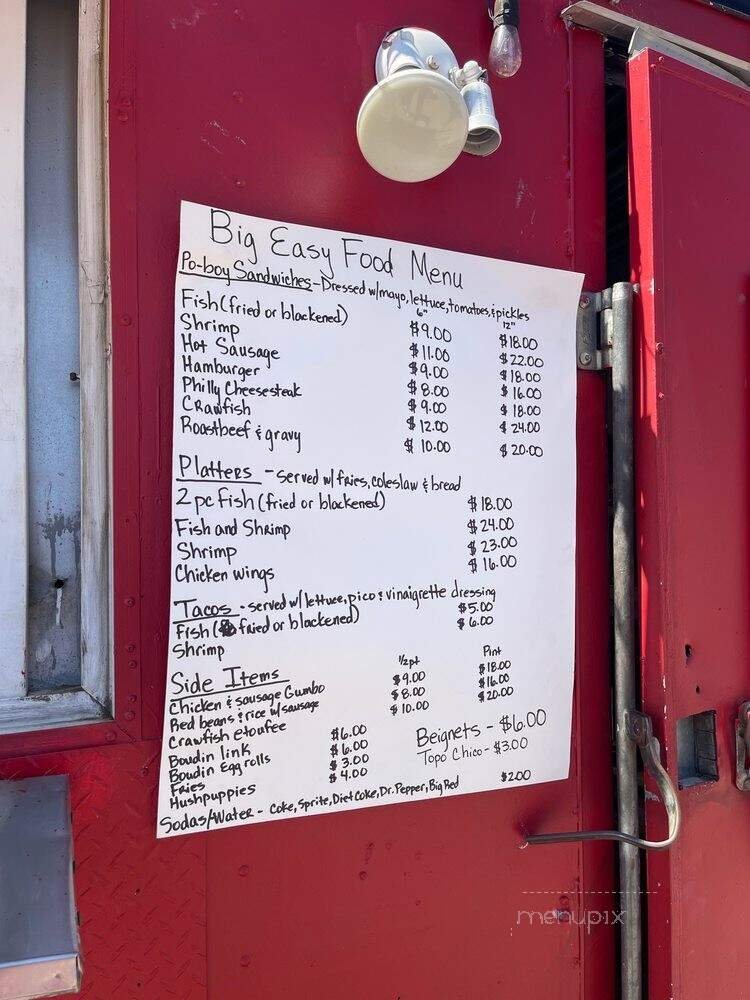 Big Easy Food Menu
Po-boy Sandwiches - Dressed w/mayo, lettuce, tomatoes, & pickles
6" 12"
Fish (fried or blackened) $9.00 $18.00
Shrimp $11.00 $22.00
Hot Sausage $9.00 $18.00
Hamburger $8.00 $16.00
Philly Cheesesteak $9.00 $18.00
Crawfish $12.00 $24.00
Roastbeef & gravy $10.00 $20.00
Platters - served w/ fries, coleslaw & bread
2 pc fish (fried or blackened) $18.00
Fish and Shrimp $24.00
Shrimp $23.00
Chicken wings $16.00
Tacos - served w/ lettuce, pico & vinaigrette dressing
Fish (fried or blackened) $5.00
Shrimp $6.00
Side Items 1/2 pt Pint
Chicken & sausage Gumbo $9.00 $18.00
Red beans & rice w/ sausage $8.00 $16.00
Crawfish etoufee $10.00 $20.00
Boudin link $6.00
Boudin Egg rolls $6.00
Fries $3.00
Hushpuppies $4.00
Beignets - $6.00
Topo Chico - $3.00
Sodas/Water - Coke, Sprite, Diet Coke, Dr. Pepper, Big Red $2.00
menupix